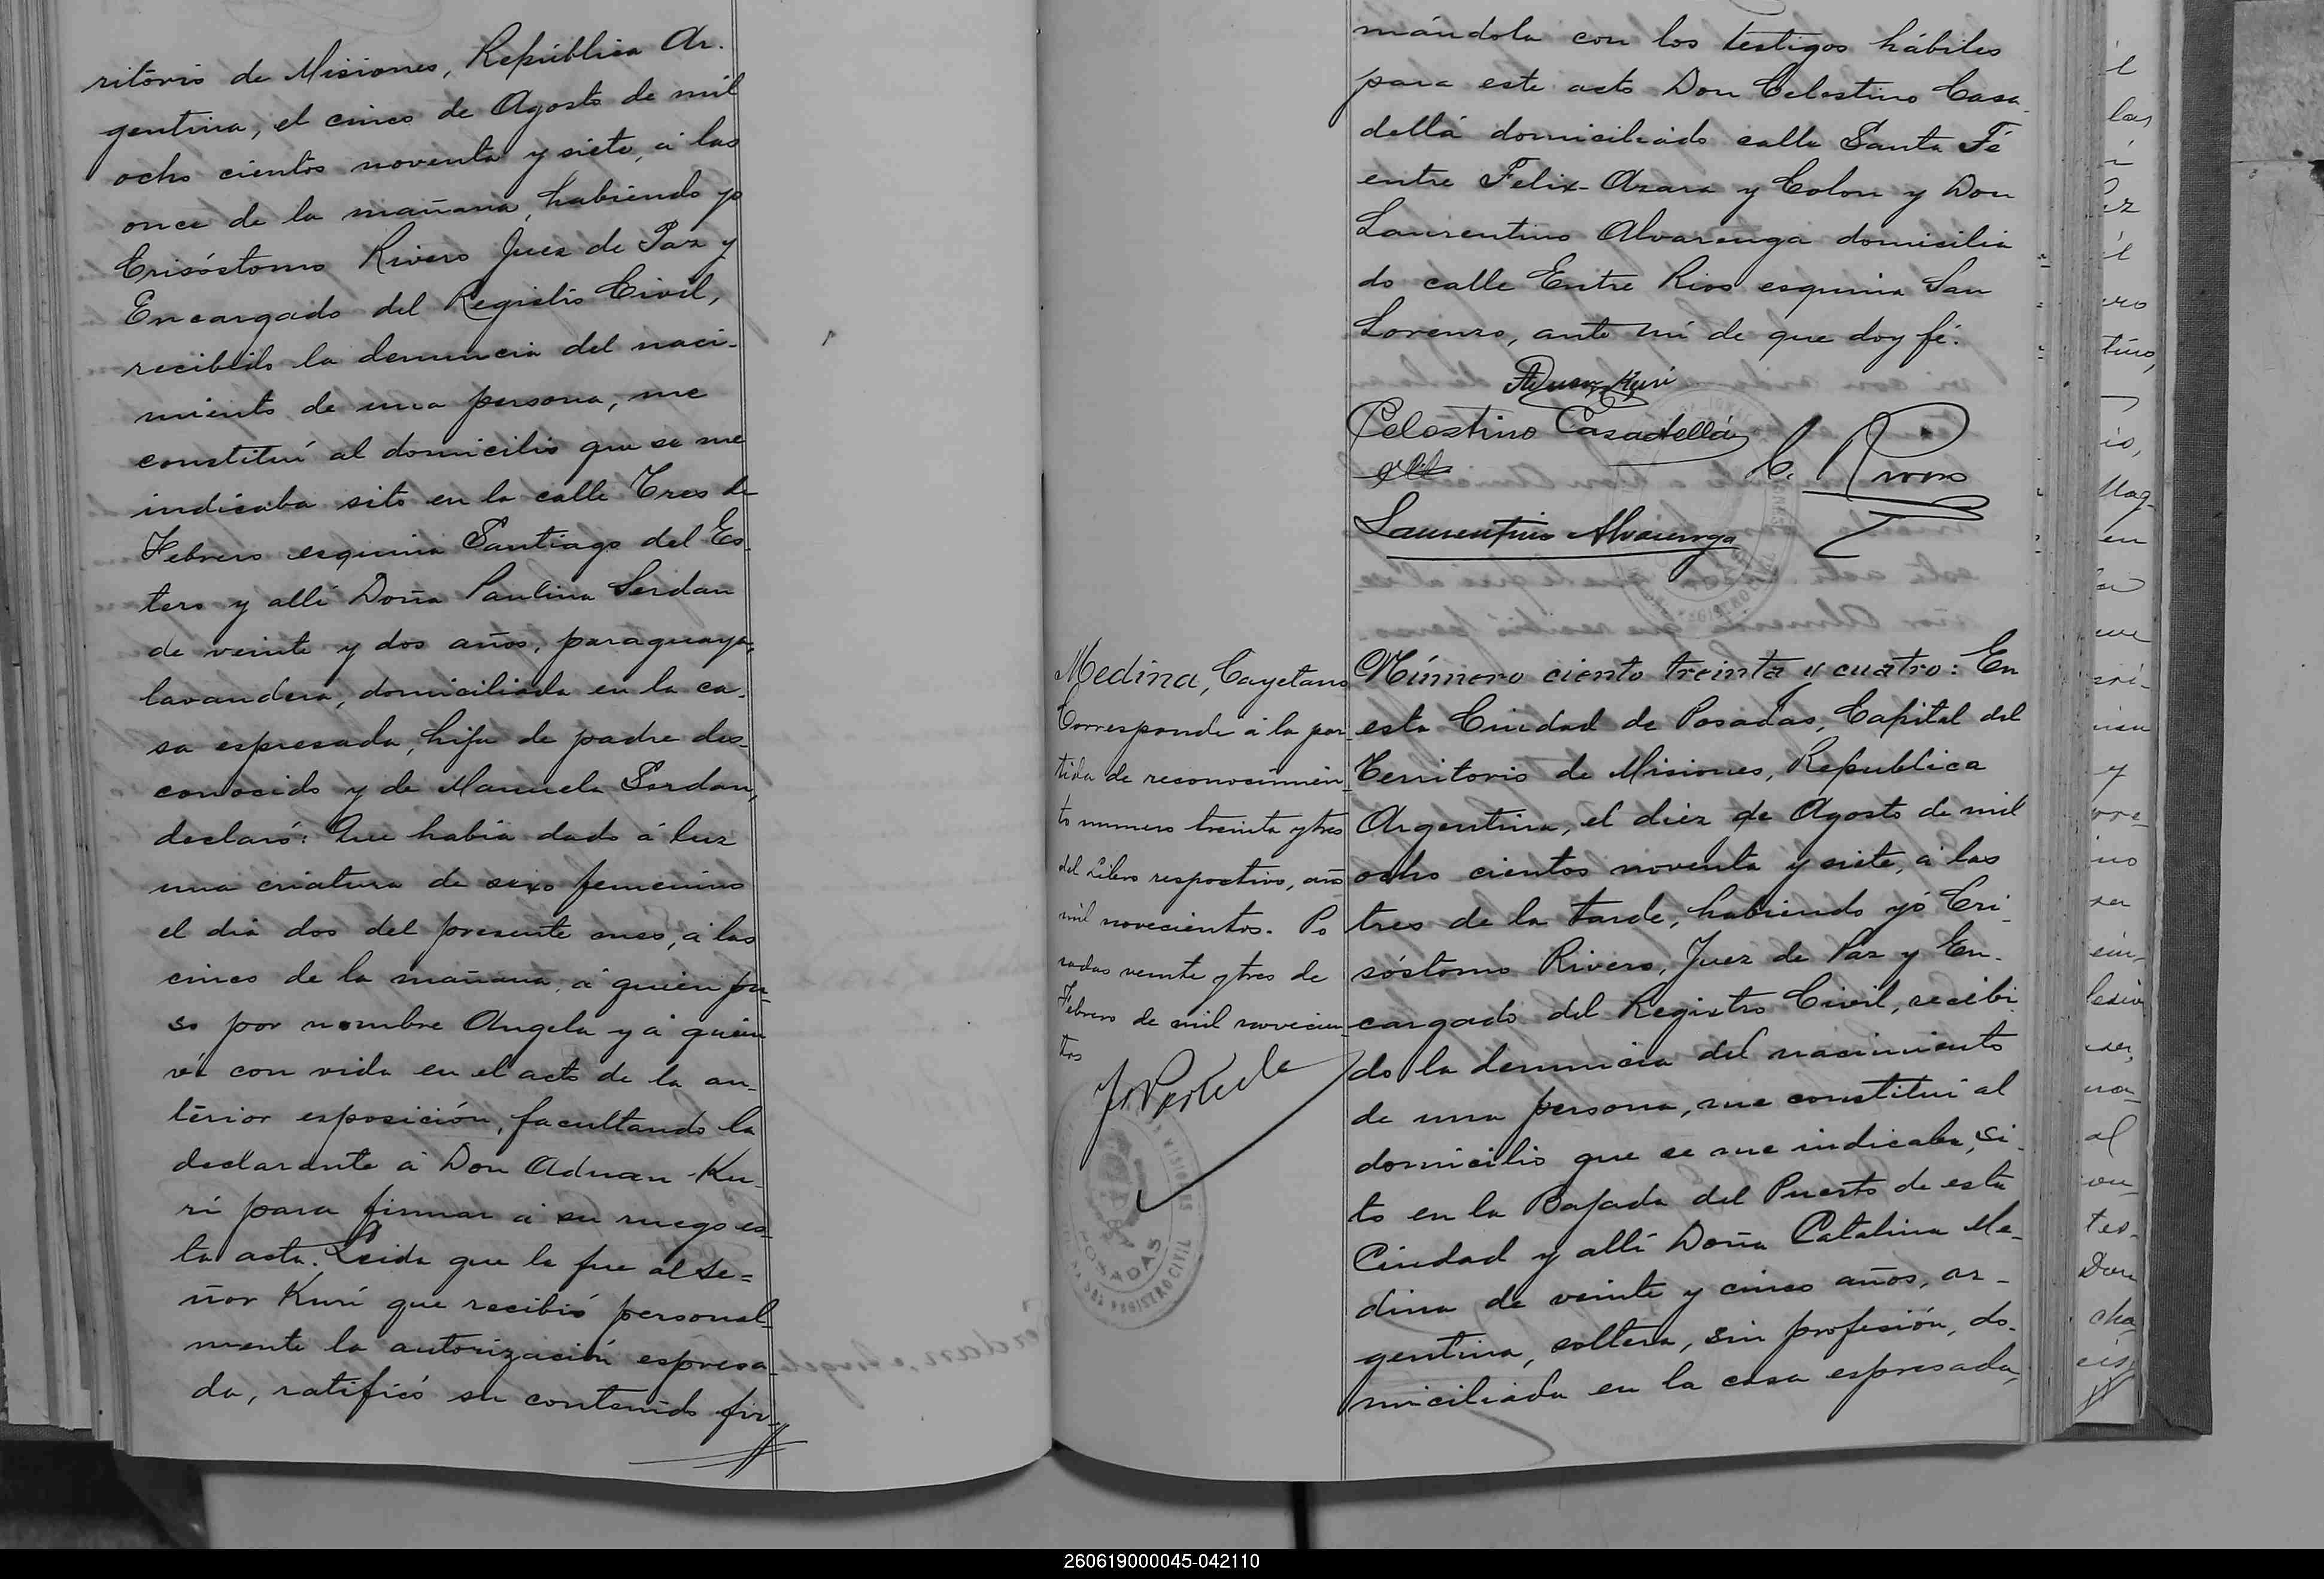 ritorio de Misiones, República Ar-
gentina, el cinco de Agosto de mil
ocho cientos noventa y siete, á las
once de la mañana, habiendo yo
Crisóstomo Rivero Juez de Paz y
Encargado del Registro Civil,
recibido la denuncia del naci-
miento de una persona, me
constituí al domicilio que se me
indicaba sito en la calle Tres de
Febrero esquina Santiago del Es-
tero y allí Doña Paulina Serdan
de veinte y dos años, paraguaya,
lavandera, domiciliada en la ca-
sa espresada, hija de padre des-
conocido y de Manuela Serdan,
declaró: Que habia dado á luz
una criatura de sexo femenino
el dia dos del presente mes, á las
cinco de la mañana, á quien pu-
so por nombre Angela y á quien
ví con vida en el acto de la an-
terior esposición, facultando la
declarante á Don Adnan Ku-
ri para firmar á su ruego es-
ta acta. Leida que le fue al Se=
ñor Kuri que recibió personal-
mente la autorización espresa-
da, ratificó su contenido fir-
mándola con los testigos hábiles
para este acto Don Celestino Casa-
dellá domiciliado calle Santa Fé
entre Felix Azara y Colon y Don
Laurentino Alvarenga domicilia
do calle Entre Rios esquina San
Lorenzo, ante mí de que doy fé.
Adnan Kuri
Celestino Casadellá
C. Rivero
Laurentino Alvarenga
Medina, Cayetano
Corresponde á la par-
tida de reconocimien-
to numero treinta y tres
del Libro respectivo, año
mil novecientos. Po
sadas veinte y tres de
Febrero de mil novecien-
tos
POSADAS
REGISTRO CIVIL
Número ciento treinta y cuatro: En
esta Ciudad de Posadas, Capital del
Territorio de Misiones, Republica
Argentina, el diez de Agosto de mil
ocho cientos noventa y siete, á las
tres de la tarde, habiendo yó Cri-
sóstomo Rivero, Juez de Paz y En-
cargado del Registro Civil, recibi-
do la denuncia del nacimiento
de una persona, me constituí al
domicilio que se me indicaba, si-
to en la Bajada del Puerto de esta
Ciudad y allí Doña Catalina Me-
dina de veinte y cinco años, ar-
gentina, soltera, sin profesión, do-
miciliada en la casa espresada,
260619000045-042110